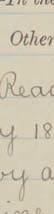 In the
Other
Read
y 18
by a